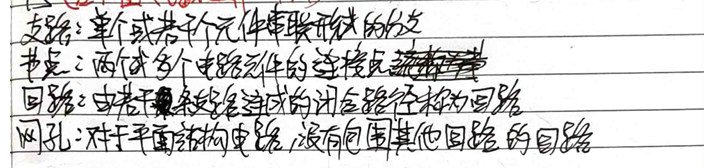 支路：单个或若干个元件串联形成的分支
节点：两个或多个电路元件的连接点
回路：由若干条支路连成的闭合路径称为回路
网孔：对于平面结构电路，没有包围其他回路的回路